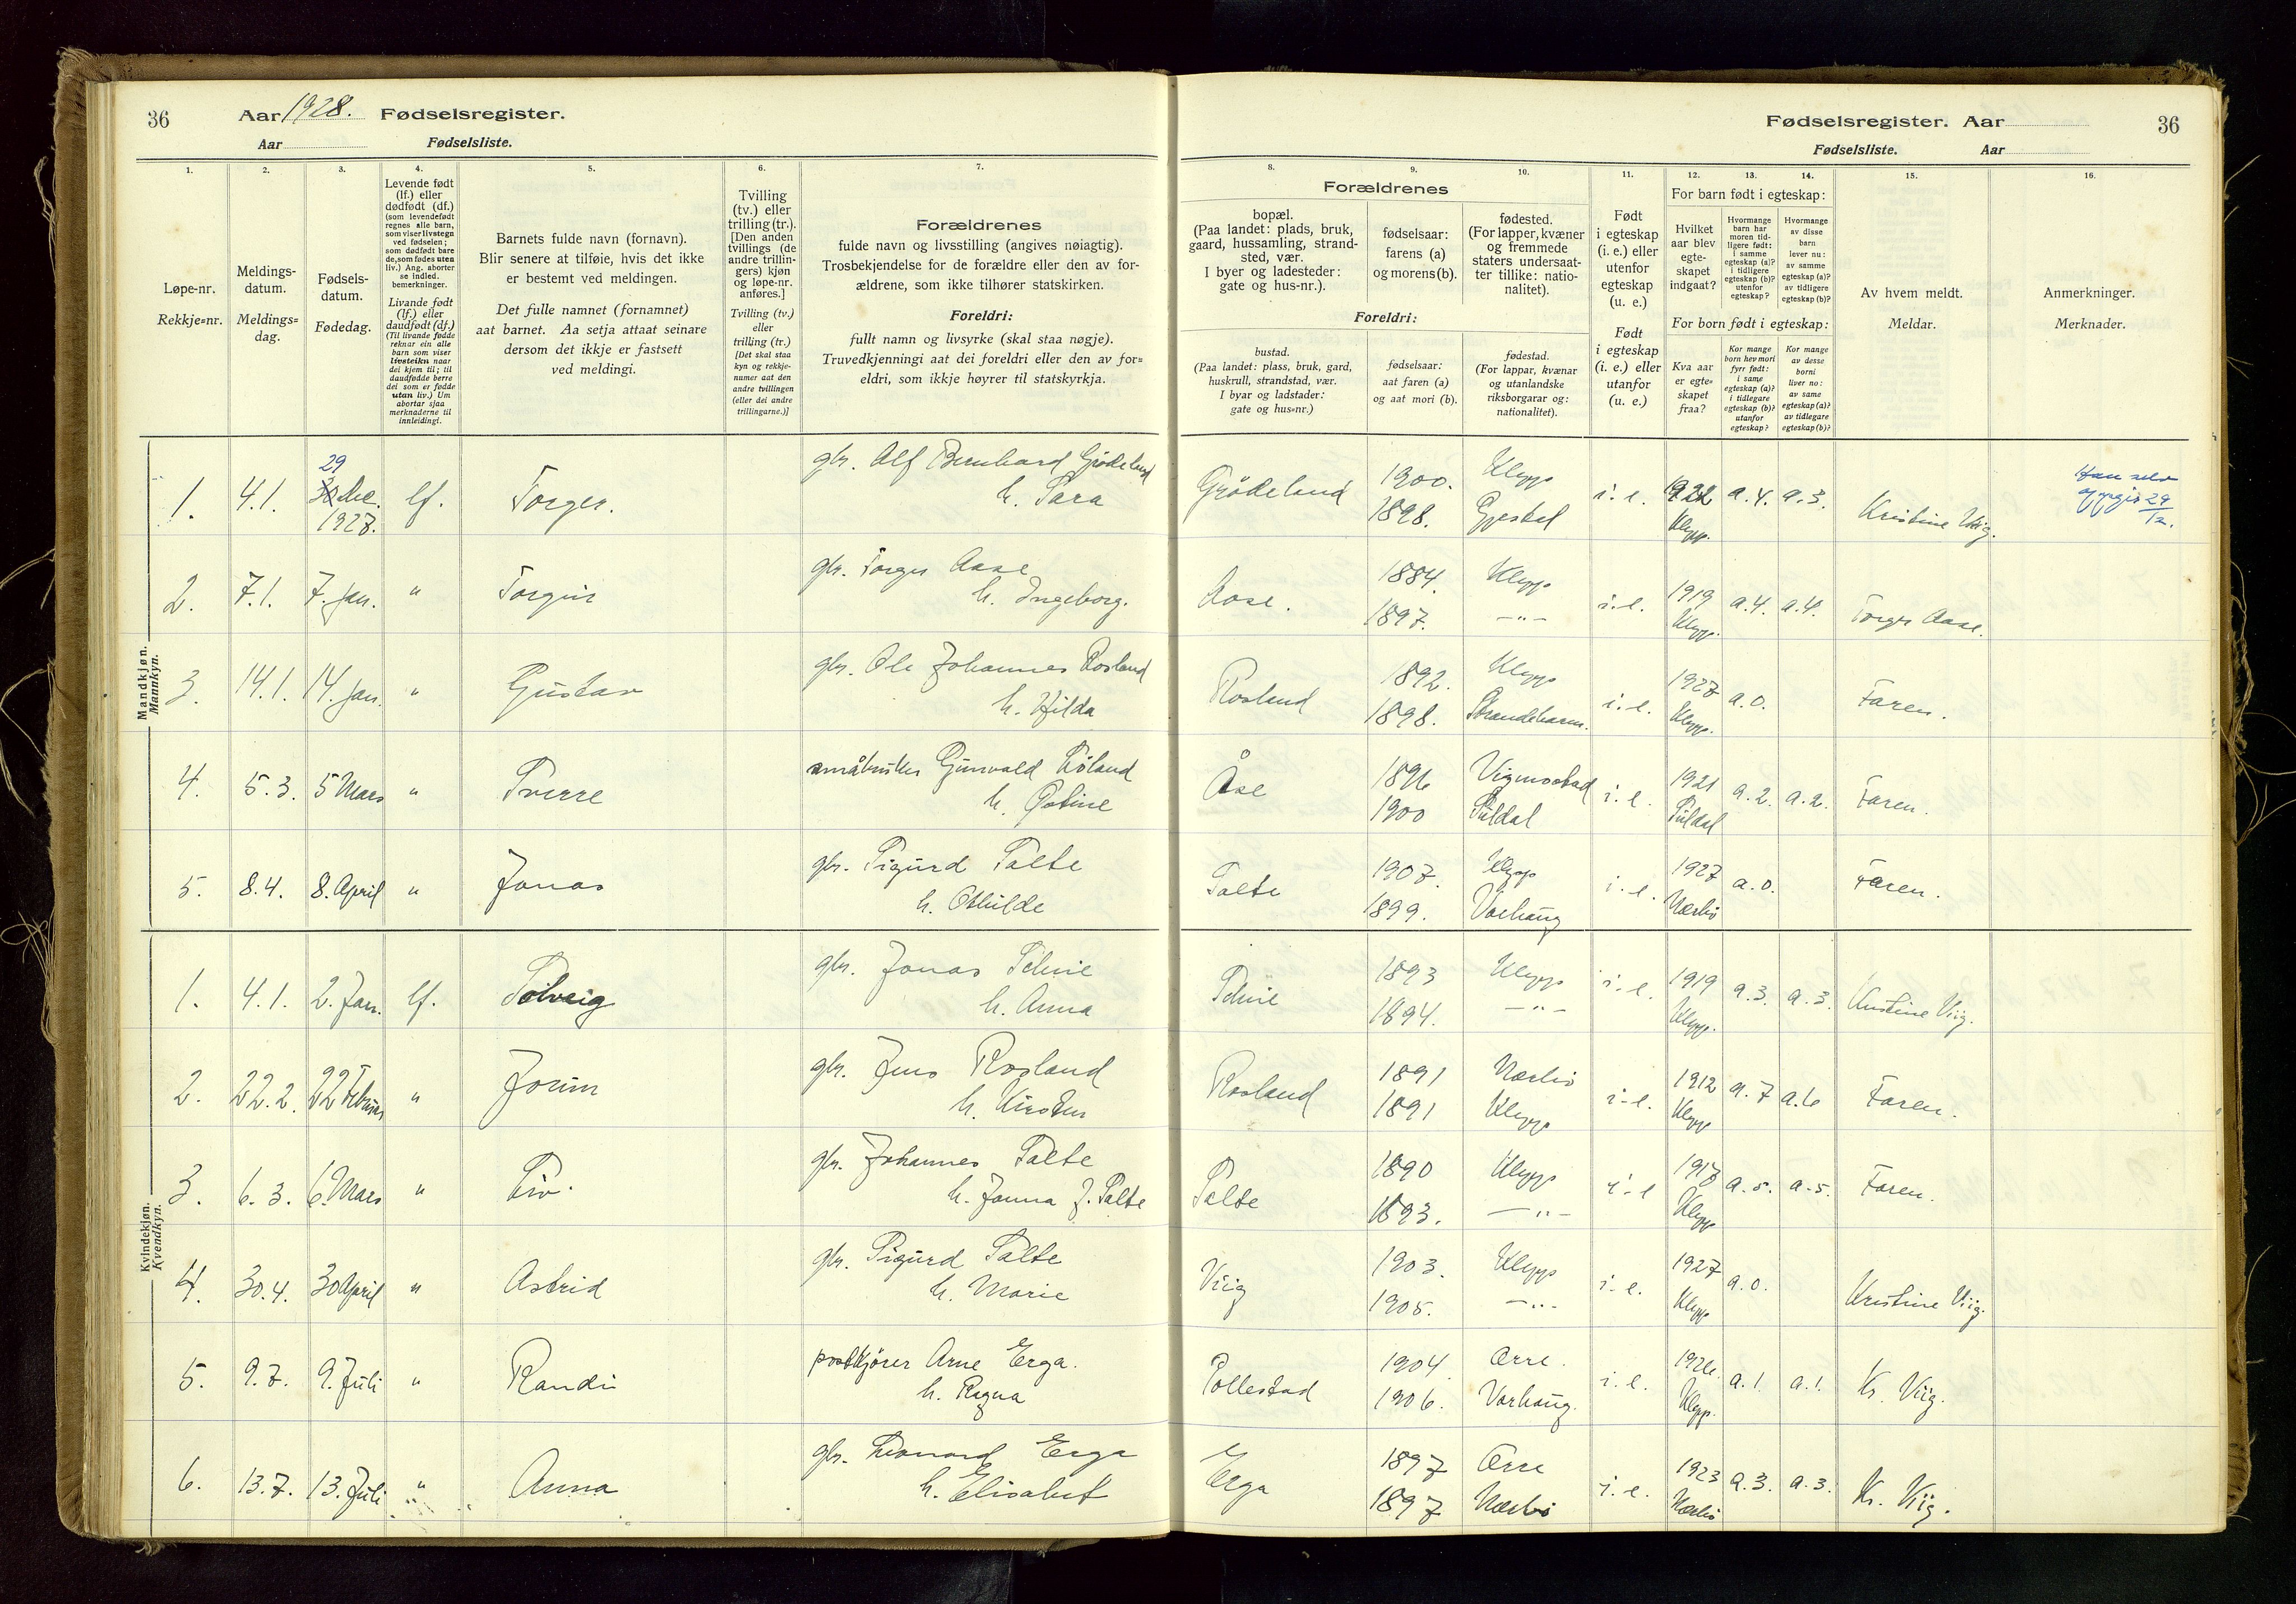 36
Aar 1928. Fødselsregister.
Aar Fødselsliste.
1.
2.
3.
4.
5.
6.
7.
Løpe-nr.
Rekkje=nr.
Meldings-
datum.
Meldings=
dag.
Fødsels-
datum.
Fødedag.
Levende født
(lf.) eller
dødfødt (df.)
(som levendefødt
regnes alle barn,
som viser livstegn
ved fødselen;
som dødfødt bare
de, som fødes uten
liv.) Ang. aborter
se indled.
bemerkninger.
Livande født
(lf.) eller
daudfødt (df.)
(Til livande fødde
reknar ein alle
barn som viser
livsteikn naar
dei kjem til; til
daudfødde berre
dei som er fødde
utan liv.) Um
abortar sjaa
merknaderne til
innleidingi.
Barnets fulde navn (fornavn).
Blir senere at tilføie, hvis det ikke
er bestemt ved meldingen.
Det fulle namnet (fornamnet)
aat barnet. Aa setja attaat seinare
dersom det ikkje er fastsett
ved meldingi.
Tvilling
(tv.) eller
trilling (tr.).
[Den anden
tvillings (de
andre trillin-
gers) kjøn
og løpe-nr.
anføres.]
Tvilling (tv.)
eller
trilling (tr.)
[Det skal staa
kyn og rekkje-
numer aat den
andre tvillingen
(eller dei andre
trillingarne.)]
Forældrenes
fulde navn og livsstilling (angives nøiagtig).
Trosbekjendelse for de forældre eller den av for-
ældrene, som ikke tilhører statskirken.
Foreldri:
fullt namn og livsyrke (skal staa nøgje).
Truvedkjenningi aat dei foreldri eller den av for=
eldri, som ikkje høyrer til statskyrkja.
Mandkjøn.
Mannkyn.
1. 4.1. 29 30 Dec. 1927. lf. Torger. gbr. Alf Bernhard Grödeland
h. Sara
2. 7.1. 7. Jan. " Torgeir gbr. Torger Aase
h. Ingeborg.
3. 14.1. 14. Jan. " Gustav gbr. Ole Johannes Rosland
h. Hilda
4. 5.3. 5 Mars " Sverre småbruker Gunvald
h. Østine
5. 8.4. 8. April " Jonas gbr. Sigurd Salte
h. Othilde
Kvindekjøn.
Kvendkyn.
1. 4.1. 2. Jan. lf. Solveig gbr. Jonas
h. Anna
2. 22.2. 22 Februar " Jorun gbr. Jens Rosland
h. Kirsten
3. 6.3. 6. Mars " Liv. gbr. Johannes Salte
h. Janna J. Salte
4. 30.4. 30 April " Astrid gbr. Sigurd Salte
h. Marie
5. 9.7. 9. Juli " Randi postkjörer Arne Erga.
h. Ragna
6. 13.7. 13. Juli " Anna gbr. Leonard Erga
h. Elisabet
Fødselsregister. Aar 36
Fødselsliste. Aar
8.
9.
10.
11.
12.
13.
14.
15.
16.
Forældrenes
bopæl.
(Paa landet: plads, bruk,
gaard, hussamling, strand-
sted, vær.
I byer og ladesteder:
gate og hus-nr.).
fødselsaar:
farens (a)
og morens (b).
fødested.
(For lapper, kvæner
og fremmede
staters undersaat-
ter tillike: natio-
nalitet).
Foreldri:
bustad.
(Paa landet: plass, bruk, gard,
huskrull, strandstad, vær.
I byar og ladstader:
gate og hus=nr.)
fødselsaar:
aat faren (a)
og aat mori (b).
fødestad.
(For lappar, kvænar
og utanlandske
riksborgarar og:
nationalitet).
Født
i egteskap
(i. e.) eller
utenfor
egteskap
(u. e.)
Født
i egteskap
(i. e.) eller
utanfor
(u. e.)
For barn født i egteskap:
Hvilket
aar blev
egte-
skapet
indgaat?
Hvormange
barn har
moren tid-
ligere født:
i samme
egteskap (a)?
i tidligere
egteskap (b)?
utenfor
egteskap?
Hvormange
av disse
barn
lever nu:
av samme
egteskap (a)?
av tidligere
egteskap (b)?
For born født i egteskap:
Kva aar
er egte=
skapet
fraa?
Kor mange
born hev mori
fyrr født:
i same
egteskap (a)?
i tidlegare
egteskap (b)?
utanfor
egteskap?
Kor mange
av desse
borni
liver no:
av same
egteskap (a)?
av tidlegare
egteskap (b)?
Av hvem meldt.
Meldar.
Anmerkninger.
Merknader.
Grödeland 1900. Klepp i. e. a.4. a.3. Kristine Viig. Han selv
1898. Gjestal Klepp. opgir 29/12.
Aase. 1884. Klepp i. e. 1919 a.4. a.4. Torger Aase.
1897. -"- Klepp.
Rosland 1892. Klepp i. e. 1927 a.0. Faren.
1898. Strandebarm. Klepp.
Åse 1896 Vigmostad i. e. 1921 a.2. a.2. Faren.
1900 Suldal Suldal
Salte 1907. Klepp i. e. 1927 a.0. Faren.
1899. Varhaug Nærbö
1893 Klepp i. e. 1919 a.3. a.3. Kristine Viig.
1894. -"- Klepp.
Rosland 1891 Nærbö i. e. 1912 a.7 a.6 Faren.
1891 Klepp Klepp
Salte 1890 Klepp i. e 1917 a.5. a.5. Faren.
1893. -"- Klepp
Viig 1903. Klepp i. e. 1927 a.0. Kristine Viig.
1905. -"- Klepp
Pollestad 1904. Orre. i. e. 1926. a.1. a.1. Kr. Viig.
1906. Varhaug. Klepp.
Erga 1897 Orre i. e. 1923 a.3. a.3. Kr. Viig.
1897 Nærbö Nærbö